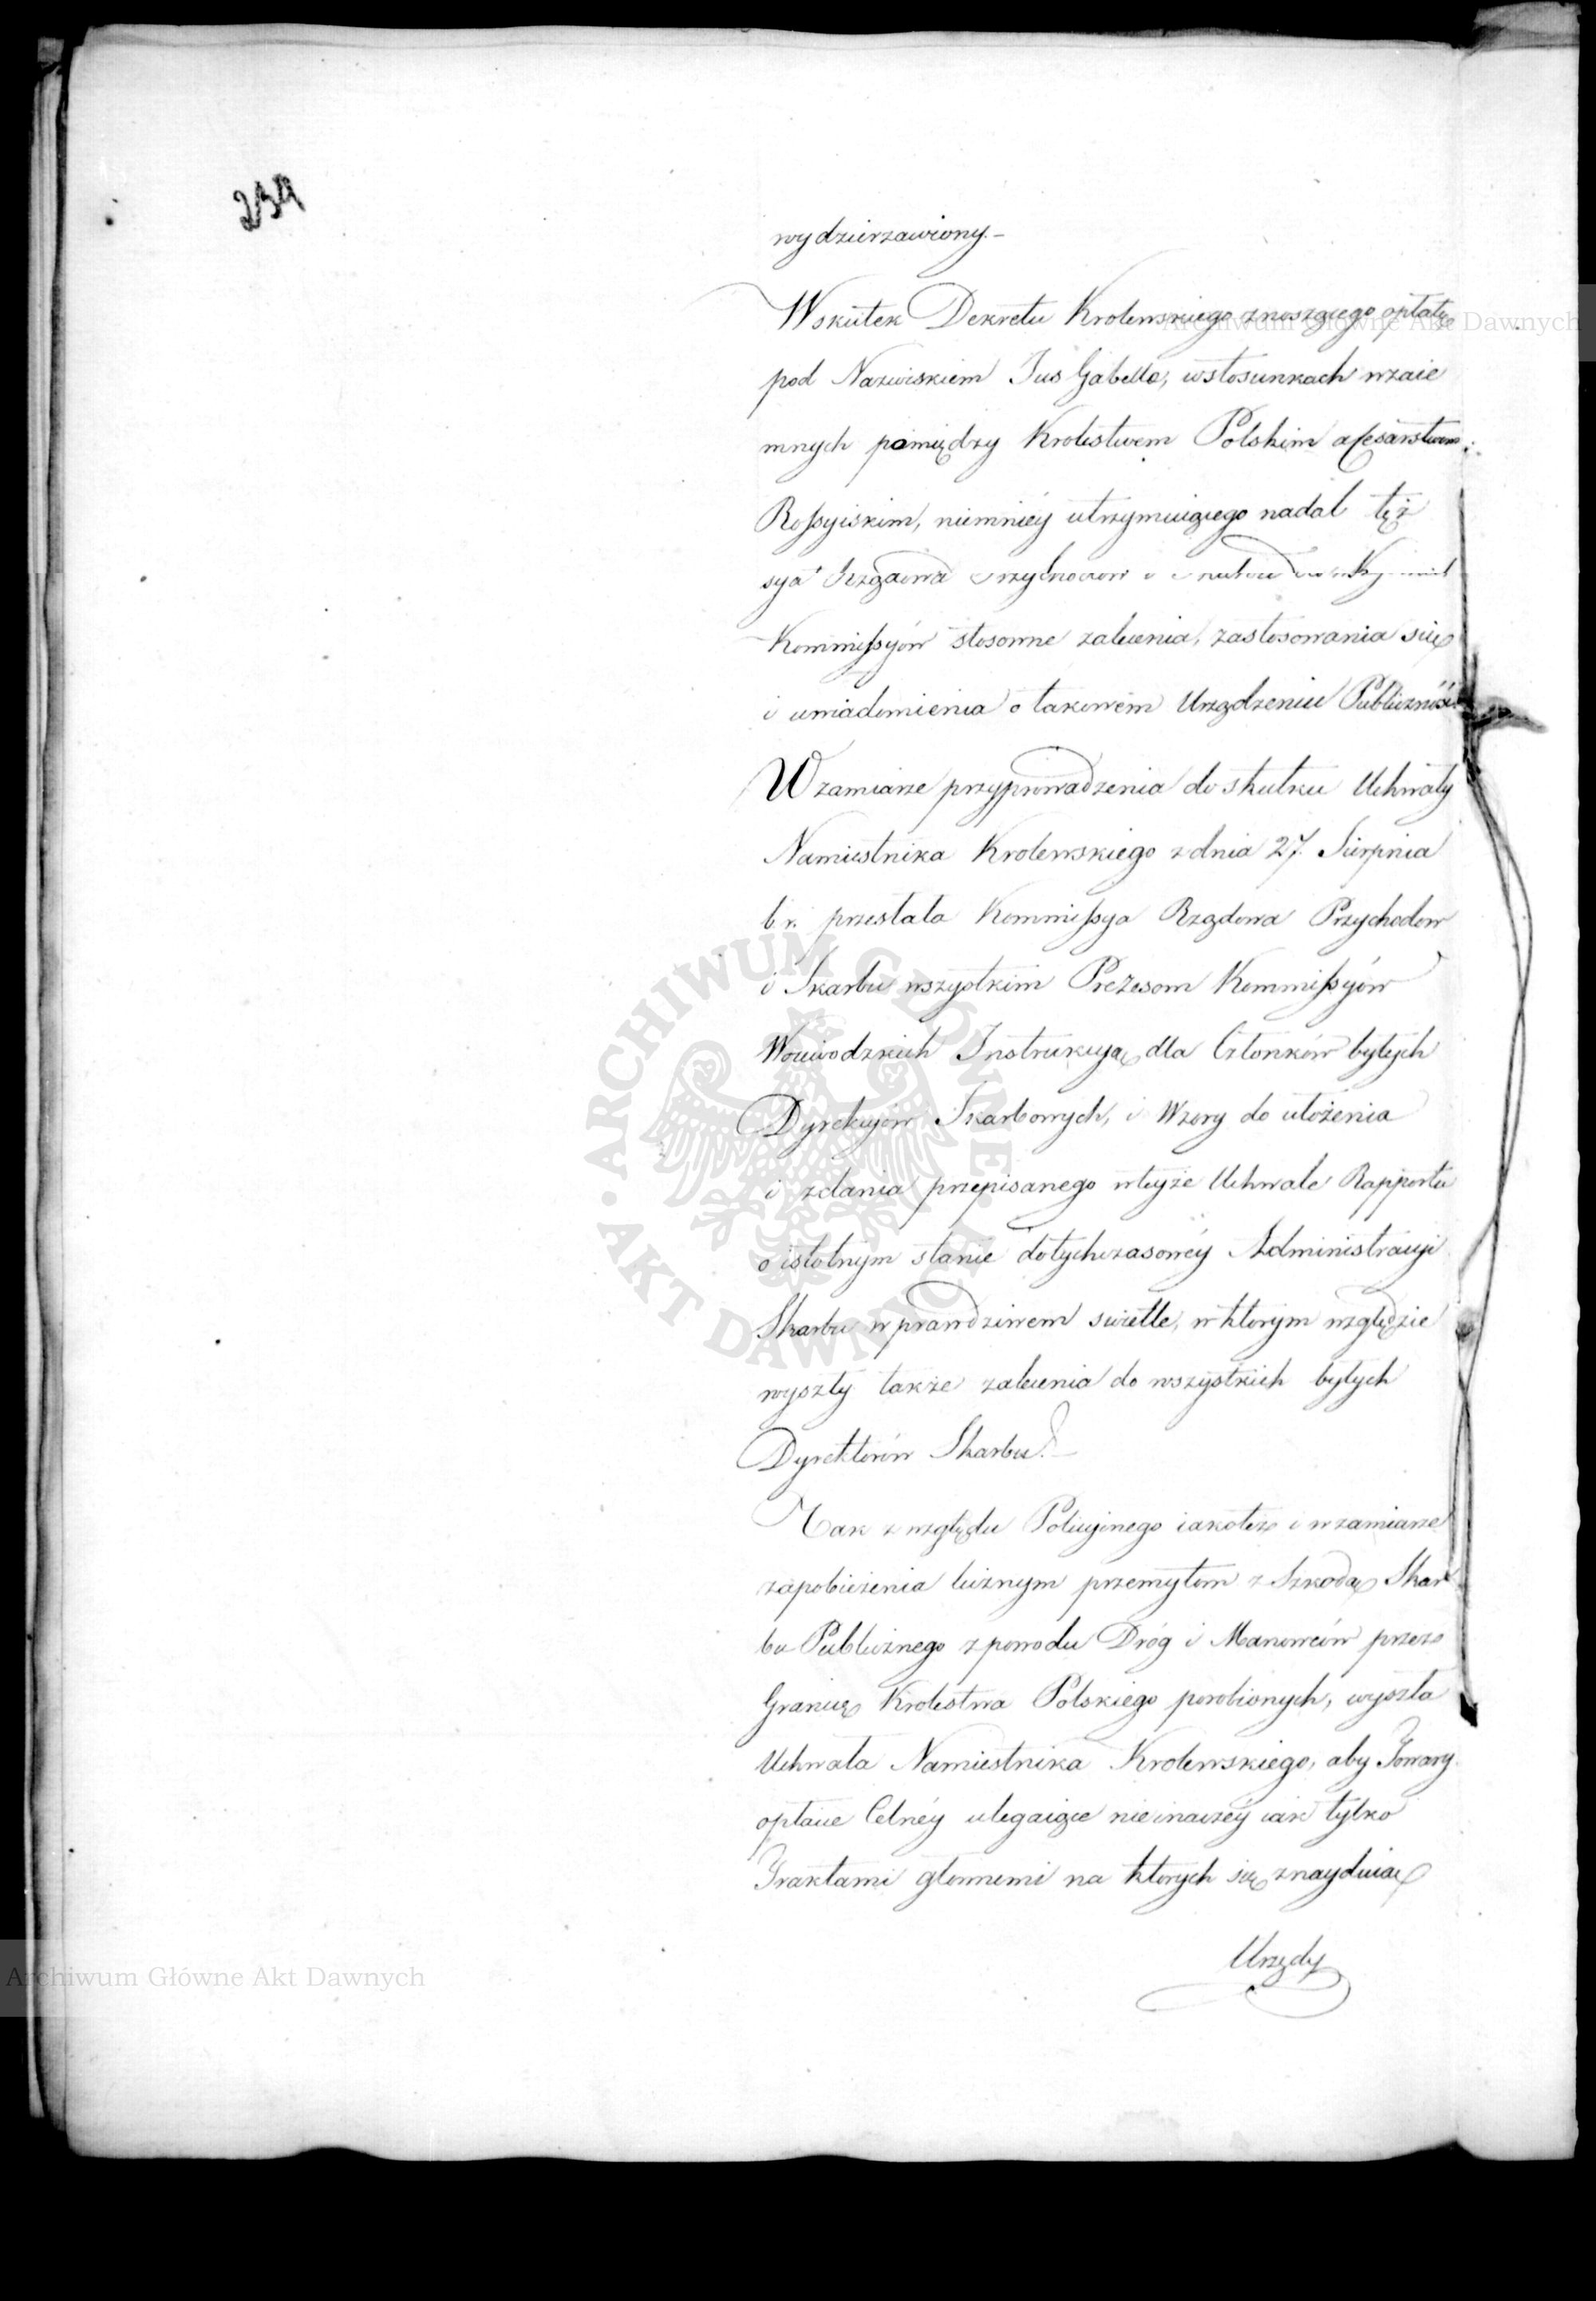 234
wydzierzawiony.–
Wskutek Dekretu Krolewskiego znoszącego opłatę
pod Nazwiskiem Jus Gabellæ, wstosunkach wzaie
mnych pomiędzy Krolestwem Polskim a Cesarstwem
Rossyiskim, niemniéy utrzymuiącego nadal też
sya Rządowa Przychodow i
Kommissyów stosowne zalecenia, zastosowania się
i uwiadomienia o takowem Urządzeniu Publicznośći
W zamiarze przyprowadzenia do skutku Uchwały
Namiestnika Krolewskiego z dnia 27. Sierpnia
b r. przesłała Kommissya Rządowa Przychodow
i Skarbu wszystkim Prezesom Kommissyów
Woiewodzkich Instrukcyą dla Członków byłych
Dyrekcyów Skarbowych, i Wzory do ułożenia
i zdania przepisanego wteyże Uchwale Rapportu
o istotnym stanie dotychczasowéy Administracyi
Skarbu w prawdziwem świetle, w ktorym względzie
wyszły także zalecenia do wszystkich byłych
Dyrektorów Skarbu.–
Tak z względu Policyinego iakoteż i w zamiarze
zapobieżenia licznym przemytom z Szkodą Skar
bu Publicznego z powodu Dróg i Manowców przez
Granicę Krolestwa Polskiego porobionych, wyszła
Uchwała Namiestnika Krolewskiego, aby Towary
opłacie Celnéy ulegaiące nie inaczéy iak tylko
Traktami głownemi na ktorych się znayduią
Urzędy
Archiwum Główne Akt Dawnych
Archiwum Główne Akt Dawnych
ARCHIWUM GŁÓWNE · AKT DAWNYCH ·